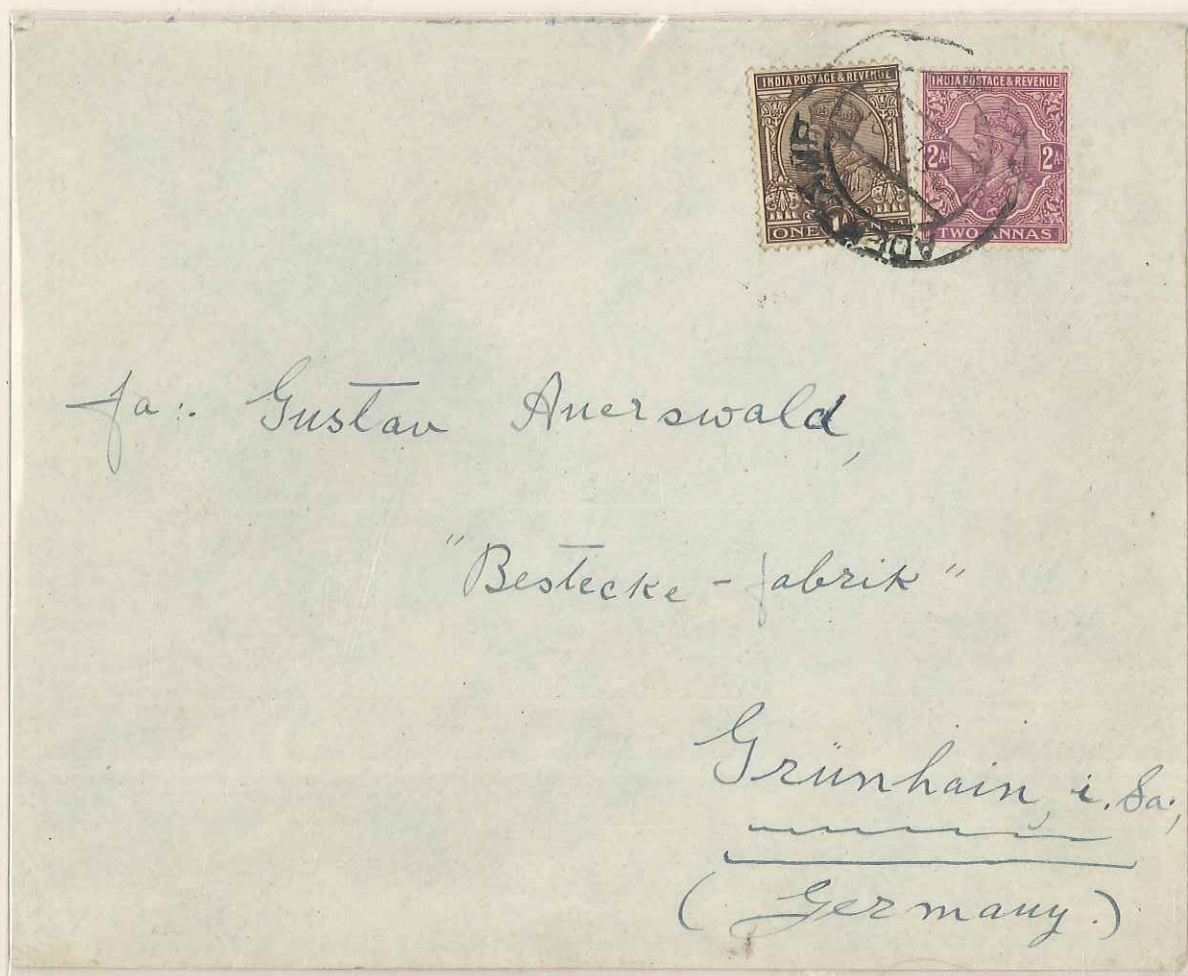 INDIA POSTAGE & REVENUE
INDIA POSTAGE & REVENUE
2As 2As
ONE
TWO ANNAS
ADEN CAMP
Fa:. Gustav Auerswald,
"Bestecke - fabrik"
Grünhain, i. Sa;
(Germany.)